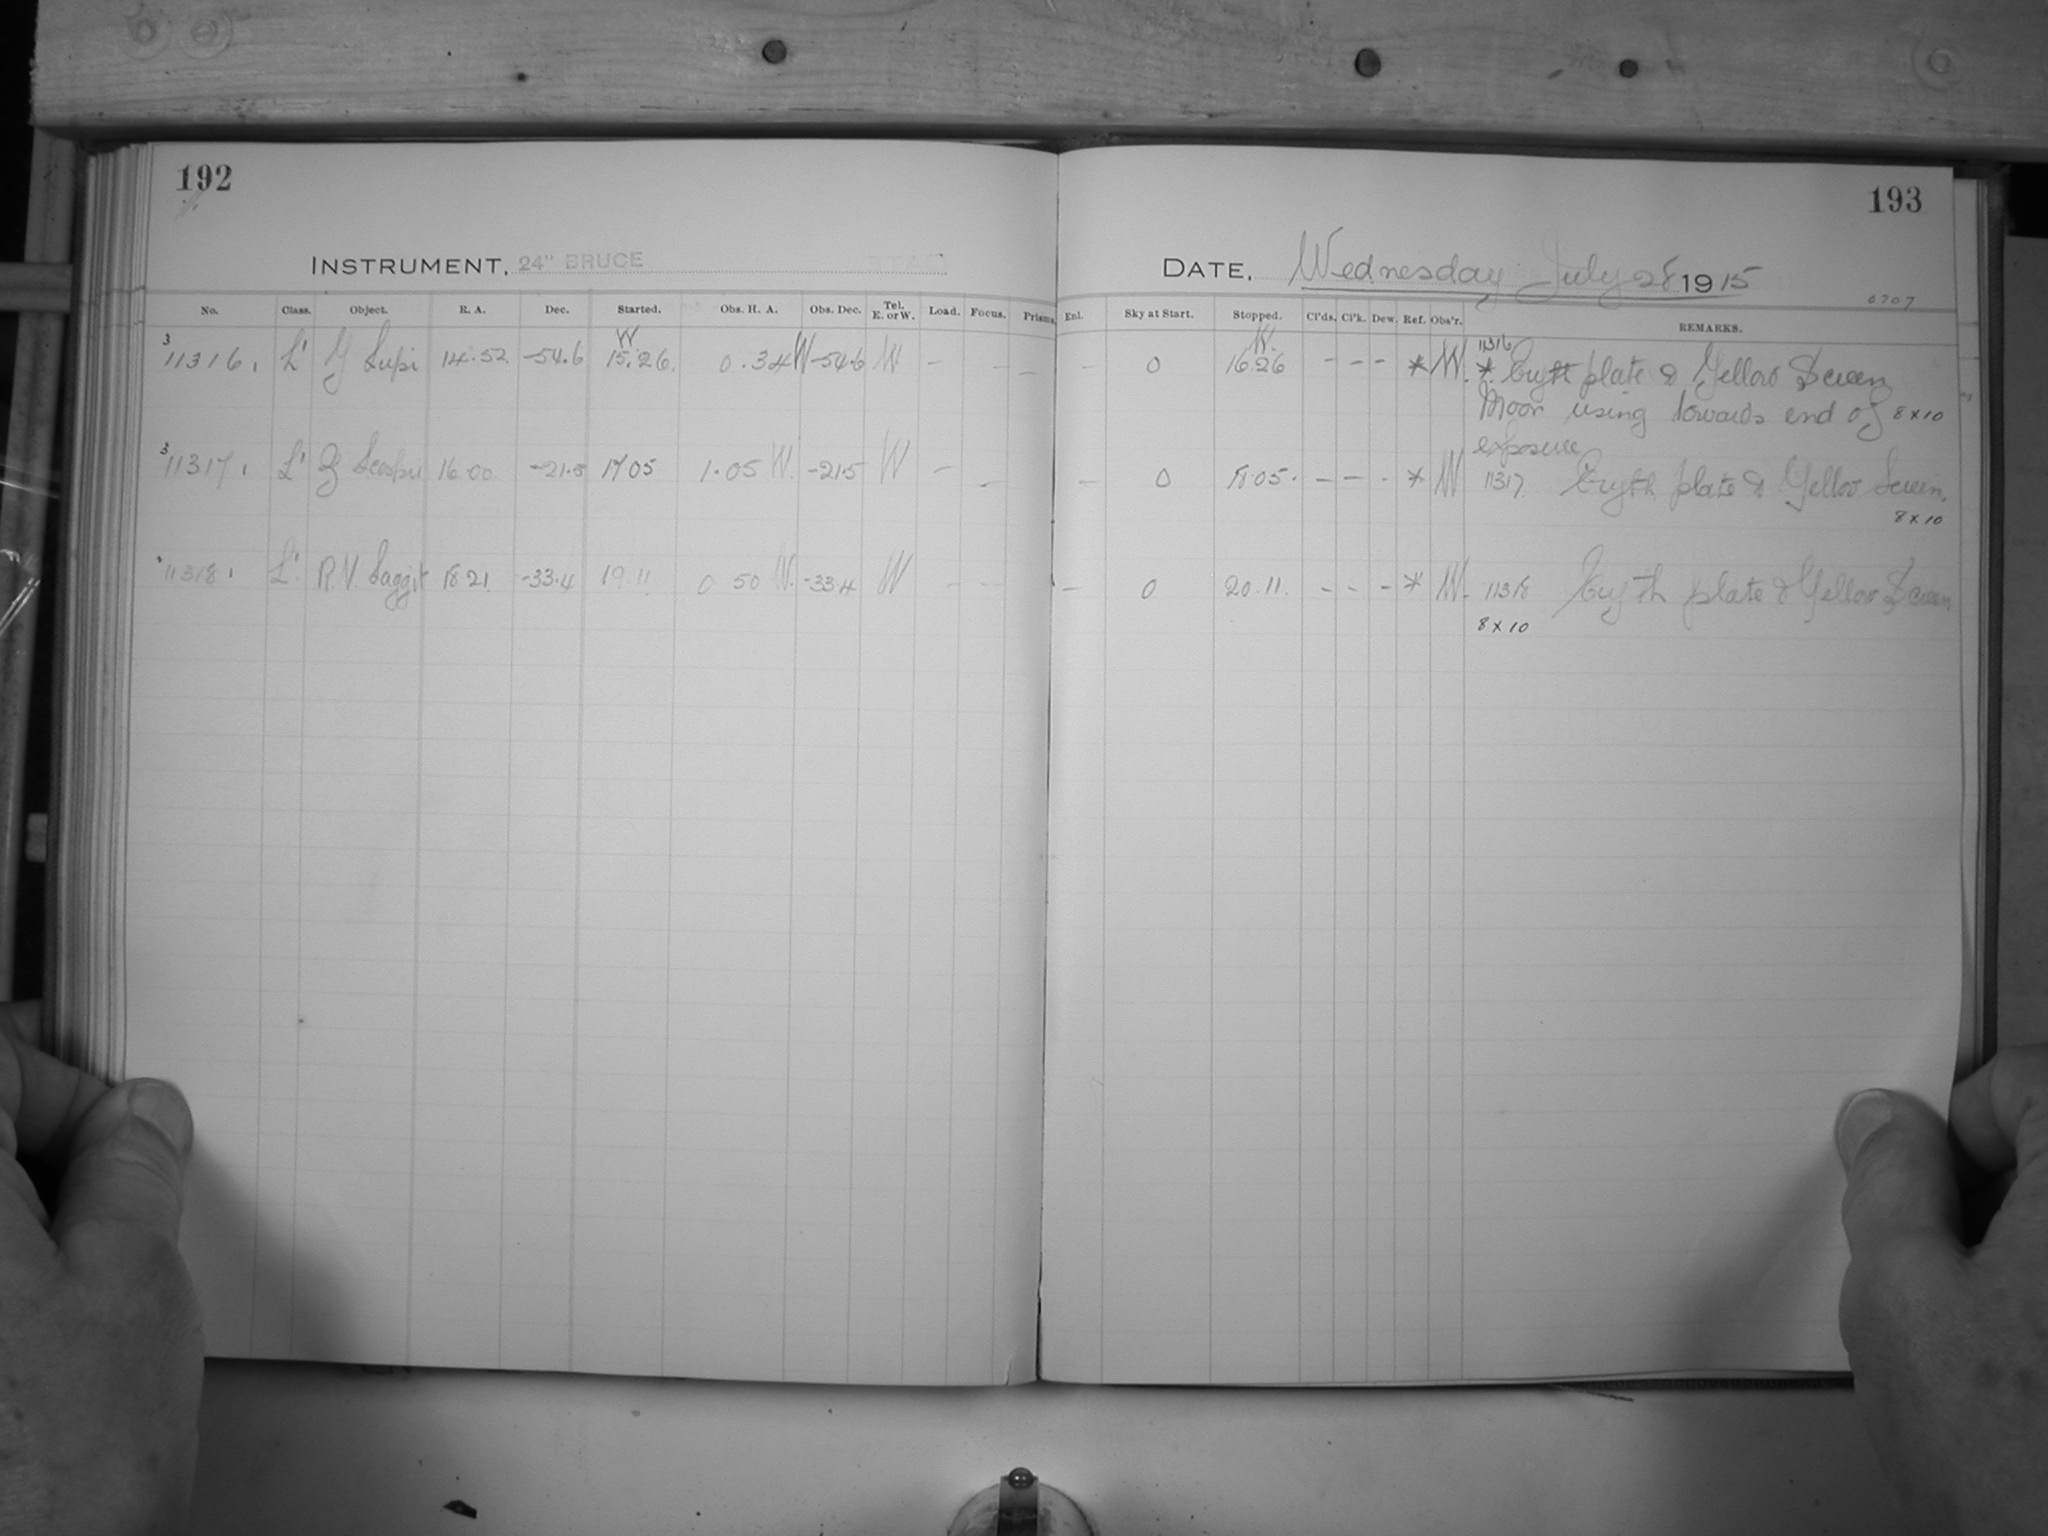 192
193
INSTRUMENT, 24" BRUCE
DATE, Wednesday July 28 1915
6707
No. Class. Object. R. A. Dec. Started. Obs. H. A. Obs. Dec. Tel. E. or W. Load. Focus. Prisms.
Enl. Sky at Start. Stopped. Cl'ds. Cl'k. Dew. Ref. Obs'r. REMARKS.
3
11316. L' Y Lupi 14.52 -54.6 W 15.26. 0.34 W -54.6 W - - -
- 0 W. 16.26 - - - * W. 11316 * Cryth plate & Yellow Screen
Moon rising towards end of 8 x 10
exposure
3
11317. L' Z Scorpii 16.00 -21.5 17.05 1.05 W. -21.5 W - -
- 0 18.05. - - - * W 11317 Cryth plate & Yellow Screen.
8 x 10
11318. L' R.V. Saggit 18 21. -33.4 19.11 0 50 W. -33.4 W - -
- 0 20.11. - - - * W. 11318 Cryth plate & Yellow Screen
8 x 10